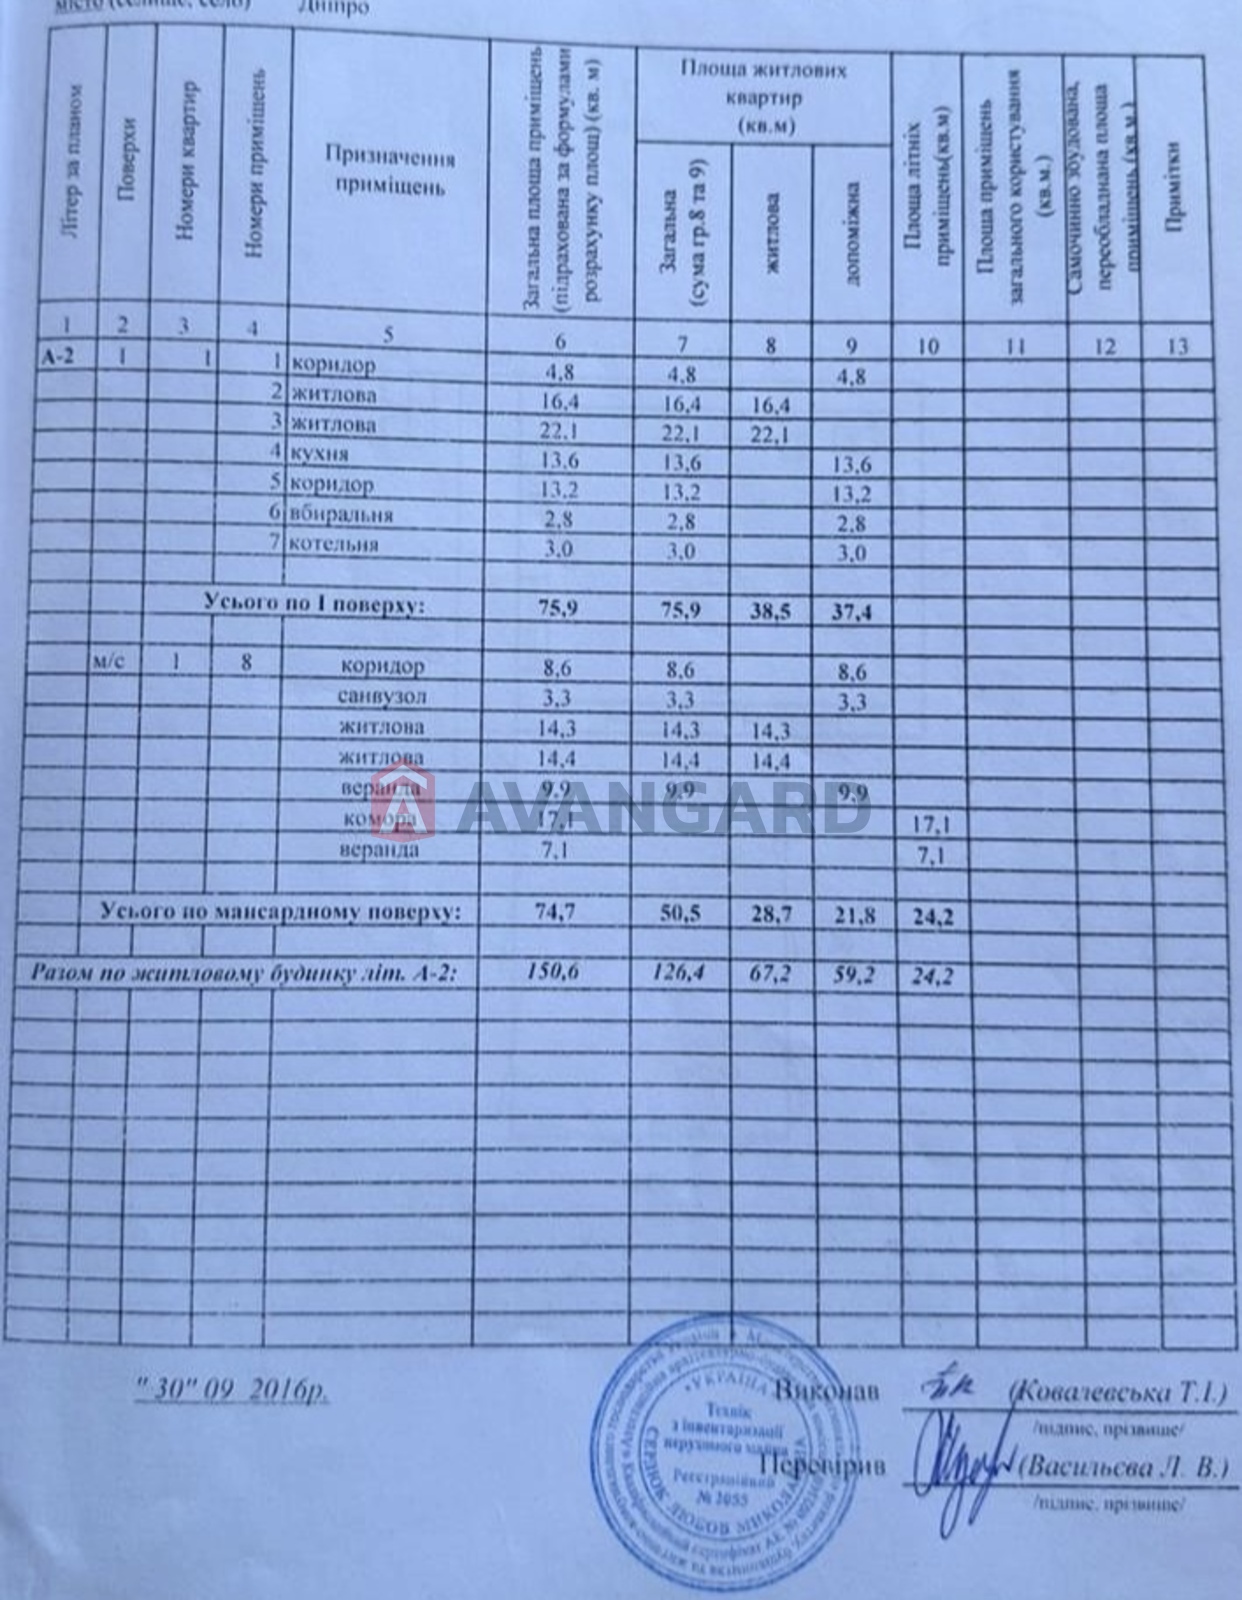 місто (селище, село) Дніпро
Літер за планом
Поверхи
Номери квартир
Номери приміщень
Призначення приміщень
Загальна площа приміщень (підрахована за формулами розрахунку площ) (кв. м)
Площа житлових квартир (кв.м)
Загальна (сума гр.8 та 9)
житлова
допоміжна
Площа літніх приміщень(кв.м)
Площа приміщень загального користування (кв.м.)
Самочинно збудована, переобладнана площа приміщень (кв.м.)
Примітки
1 2 3 4 5 6 7 8 9 10 11 12 13
А-2 1 1 1 коридор 4,8 4,8 4,8
2 житлова 16,4 16,4 16,4
3 житлова 22,1 22,1 22,1
4 кухня 13,6 13,6 13,6
5 коридор 13,2 13,2 13,2
6 вбиральня 2,8 2,8 2,8
7 котельня 3,0 3,0 3,0
Усього по І поверху: 75,9 75,9 38,5 37,4
м/с 1 8 коридор 8,6 8,6 8,6
санвузол 3,3 3,3 3,3
житлова 14,3 14,3 14,3
житлова 14,4 14,4 14,4
веранда 9,9 9,9 9,9
AVANGARD
комора 17,1 17,1
веранда 7,1 7,1
Усього по мансардному поверху: 74,7 50,5 28,7 21,8 24,2
Разом по житловому будинку літ. А-2: 150,6 126,4 67,2 59,2 24,2
"30" 09 2016р.
Виконав (Ковалевська Т.І.)
/підпис, прізвище/
Перевірив (Васильєва Л. В.)
/підпис, прізвище/
УКРАЇНА
Технік
з інвентаризації
нерухомого майна
Реєстраційний
№ 2055
СЕРДЮК ЛЮБОВ МИКОЛАЇВНА